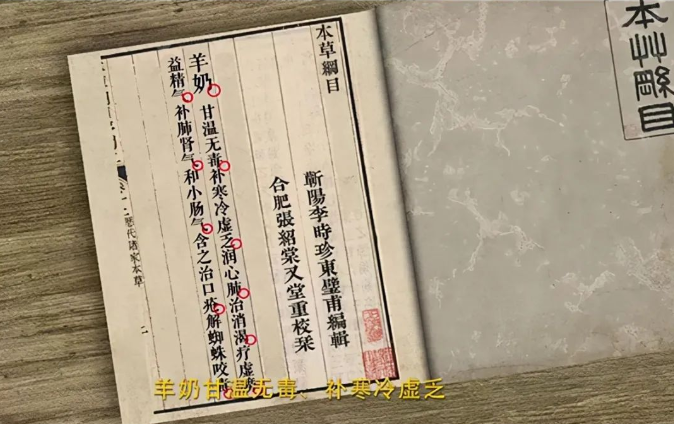 本草綱目
蘄陽李時珍東璧甫編輯
合肥張紹棠又堂重校栞
羊奶 甘温无毒补寒冷虚乏润心肺治消渴疗虚
益精气补肺肾气和小肠气含之治口疮解蜘蛛咬
歷代諸家本草
二
本艸縣目
羊奶甘温无毒、补寒冷虚乏